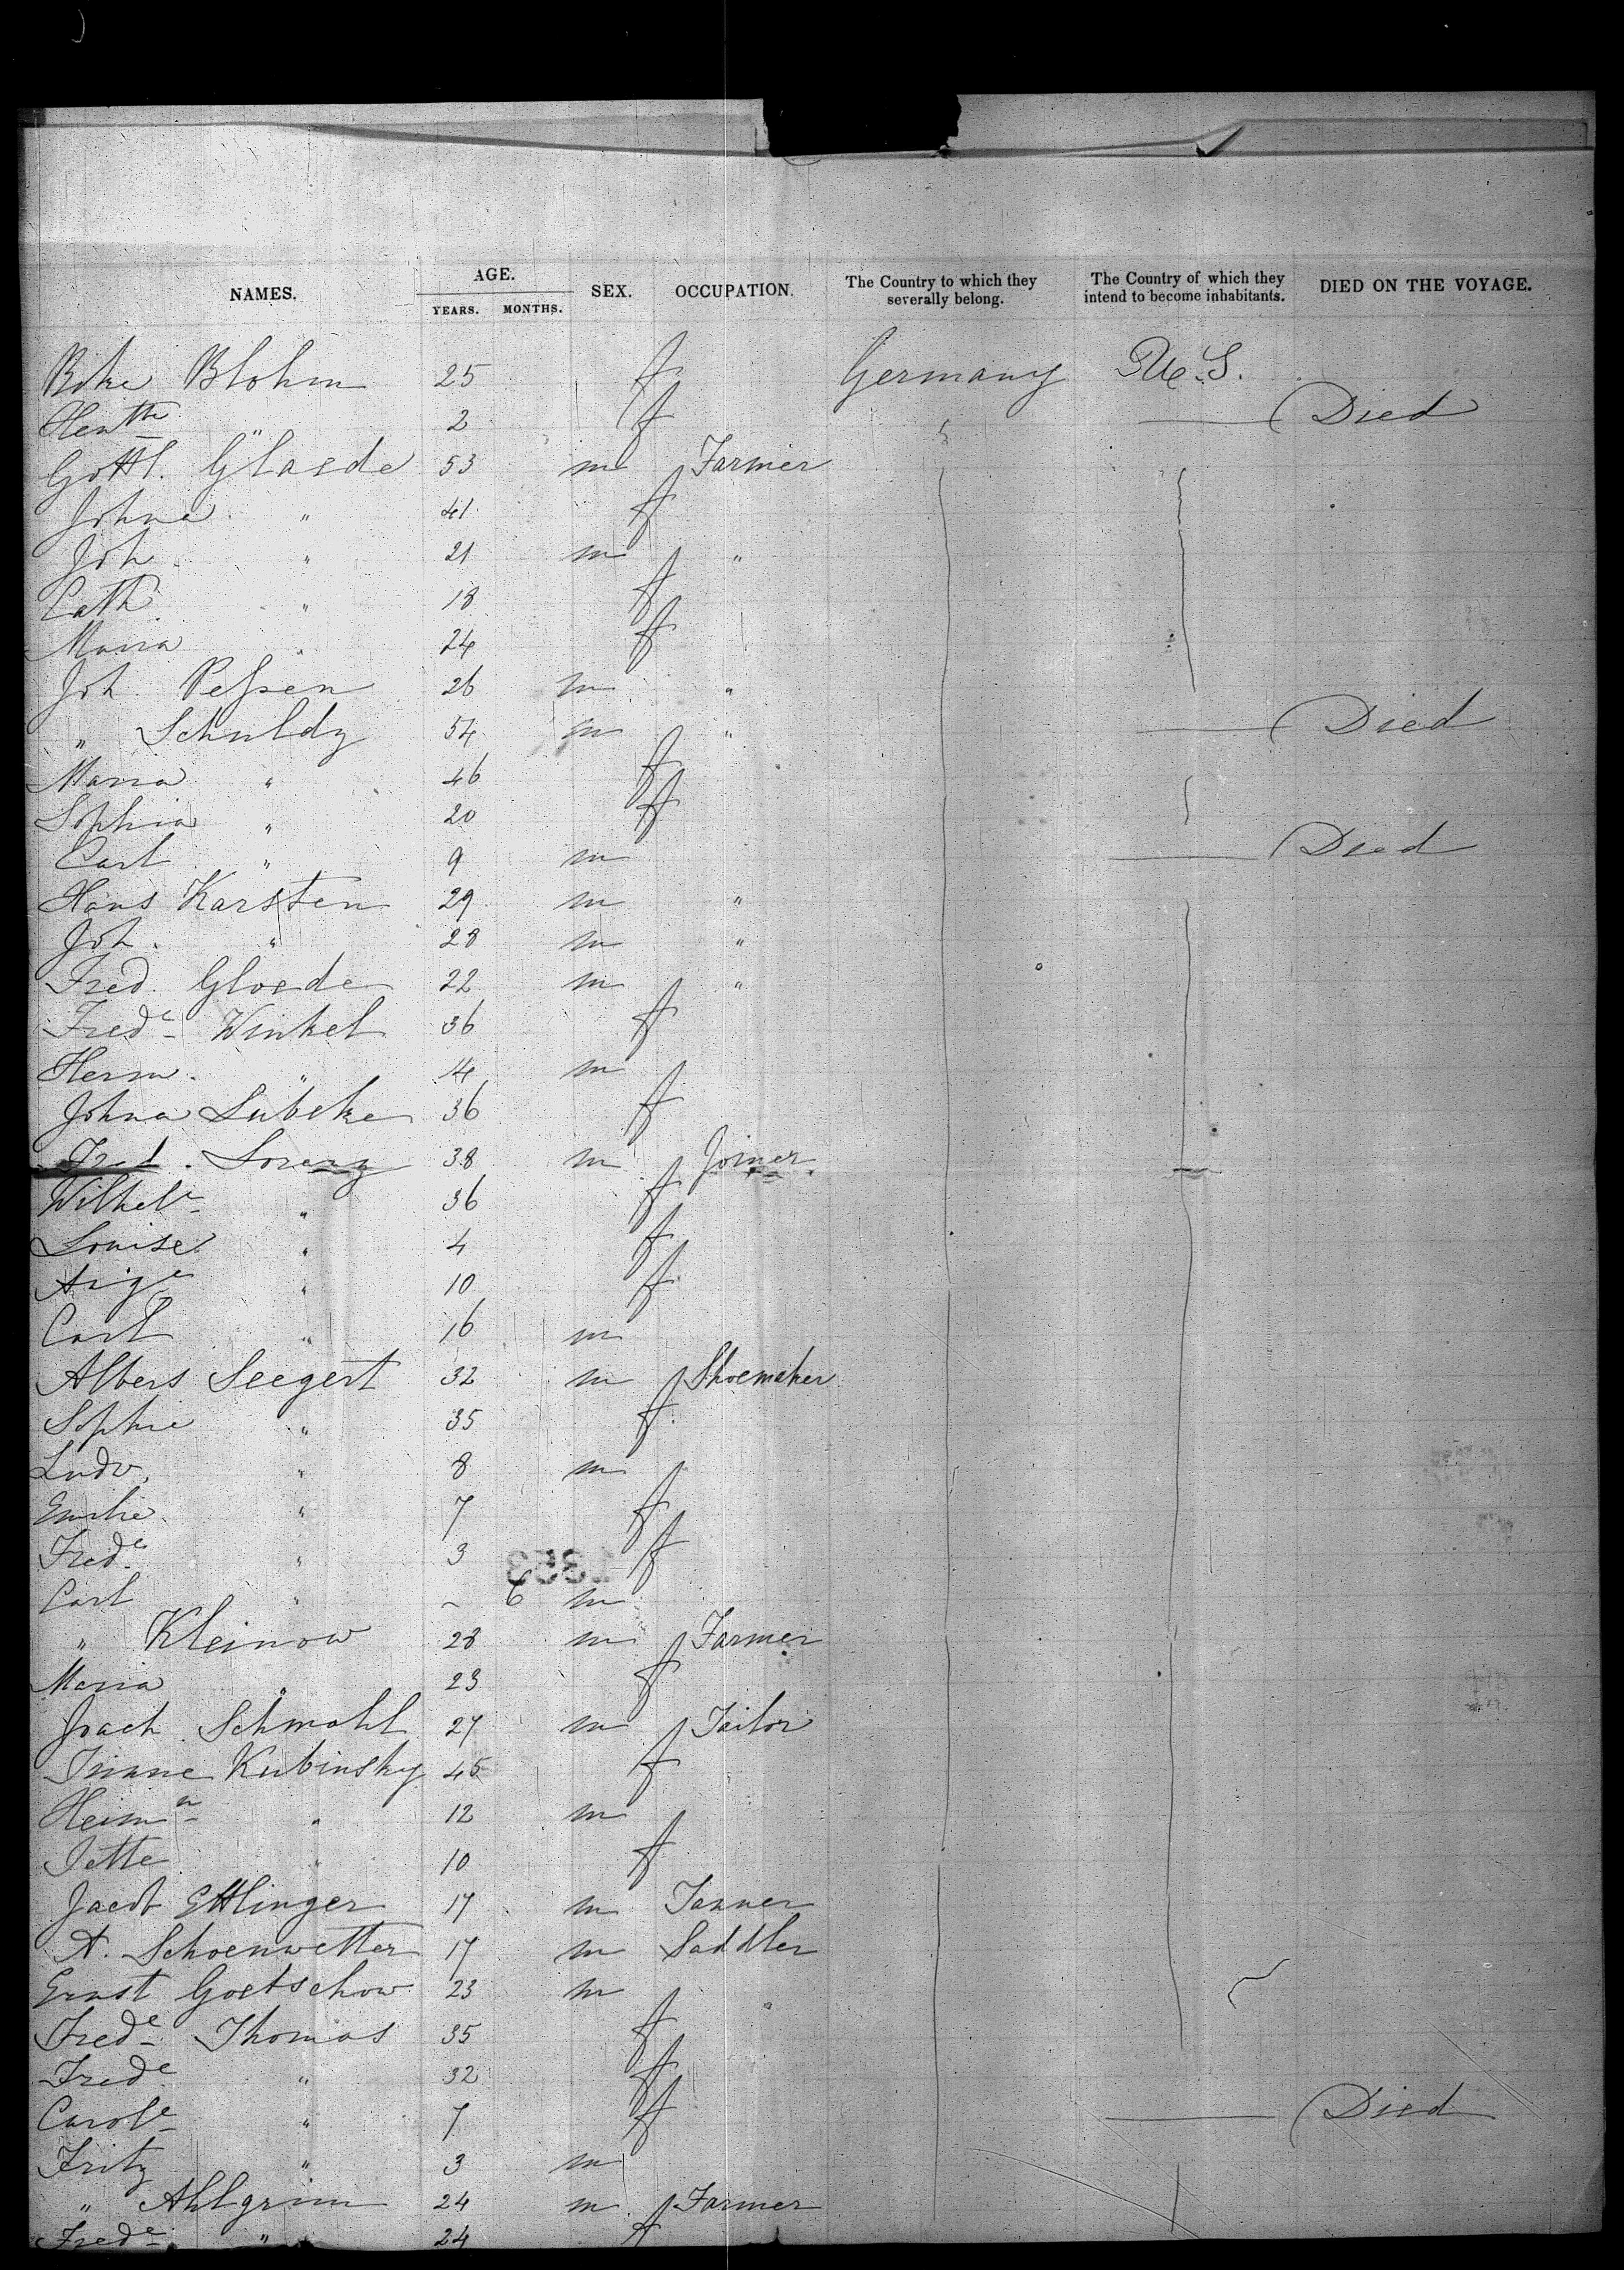 NAMES. AGE. SEX. OCCUPATION. The Country to which they severally belong. The Country of which they intend to become inhabitants. DIED ON THE VOYAGE.
YEARS. MONTHS.
Blohm 25 f Germany U.S.
" 2 f Died
Gottl. Glaede 53 m Farmer
Johna " 41 f
Joh. " 21 m "
Cath " 18 f
Maria " 24 f
Joh. Peßsen 26 m "
" Schuldz 54 m " Died
Maria " 46 f
Sophia " 20 f
Carl " 9 m Died
Hans Karsten 29 m "
Joh. " 28 m "
Fred. Gloede 22 m "
Frede Winkel 36 f
Herm. " 14 m
Johna Lübcke 36 f
Fred. Lorenz 38 m Joiner
Wilhele " 36 f
Louise " 4 f
Auge " 10 f
Carl " 16 m
Albers Seegert 32 m Shoemaker
Sophie " 35 f
Ludv. " 8 m
Emilie " 7 f
Frede " 3 f
Carl " ~ 6 m
" Kleinow 28 m Farmer
Maria " 23 f
Joach. Schmahl 27 m Tailor
Kubinsky 45 f
Heimn " 12 m
Jette " 10 f
Jacob Ettlinger 17 m Tanner
A. Schoenwetter 17 m Saddler
Ernst Goetschow 23 m "
Frede Thomas 35 f
Frede " 32 f
Carole " 7 f Died
Fritz " 3 m
" Ahlgrim 24 m Farmer
Frede " 24 f